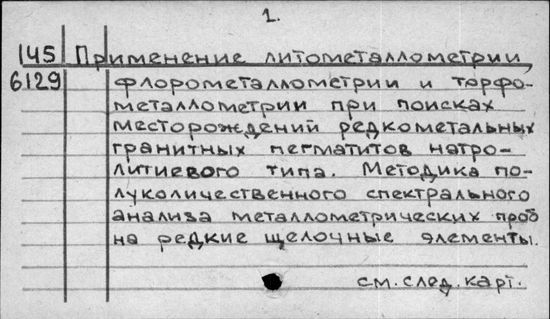 1.
145 Применение литометаллометрии,
6129 флорометаллометрии и торфо-
металлометрии при поисках
месторождений редкометальных
гранитных пегматитов натро-
литиевого типа. Методика по-
луколичественного спектрального
анализа металлометрических проб
на редкие щелочные элементы.
см. след. карт.